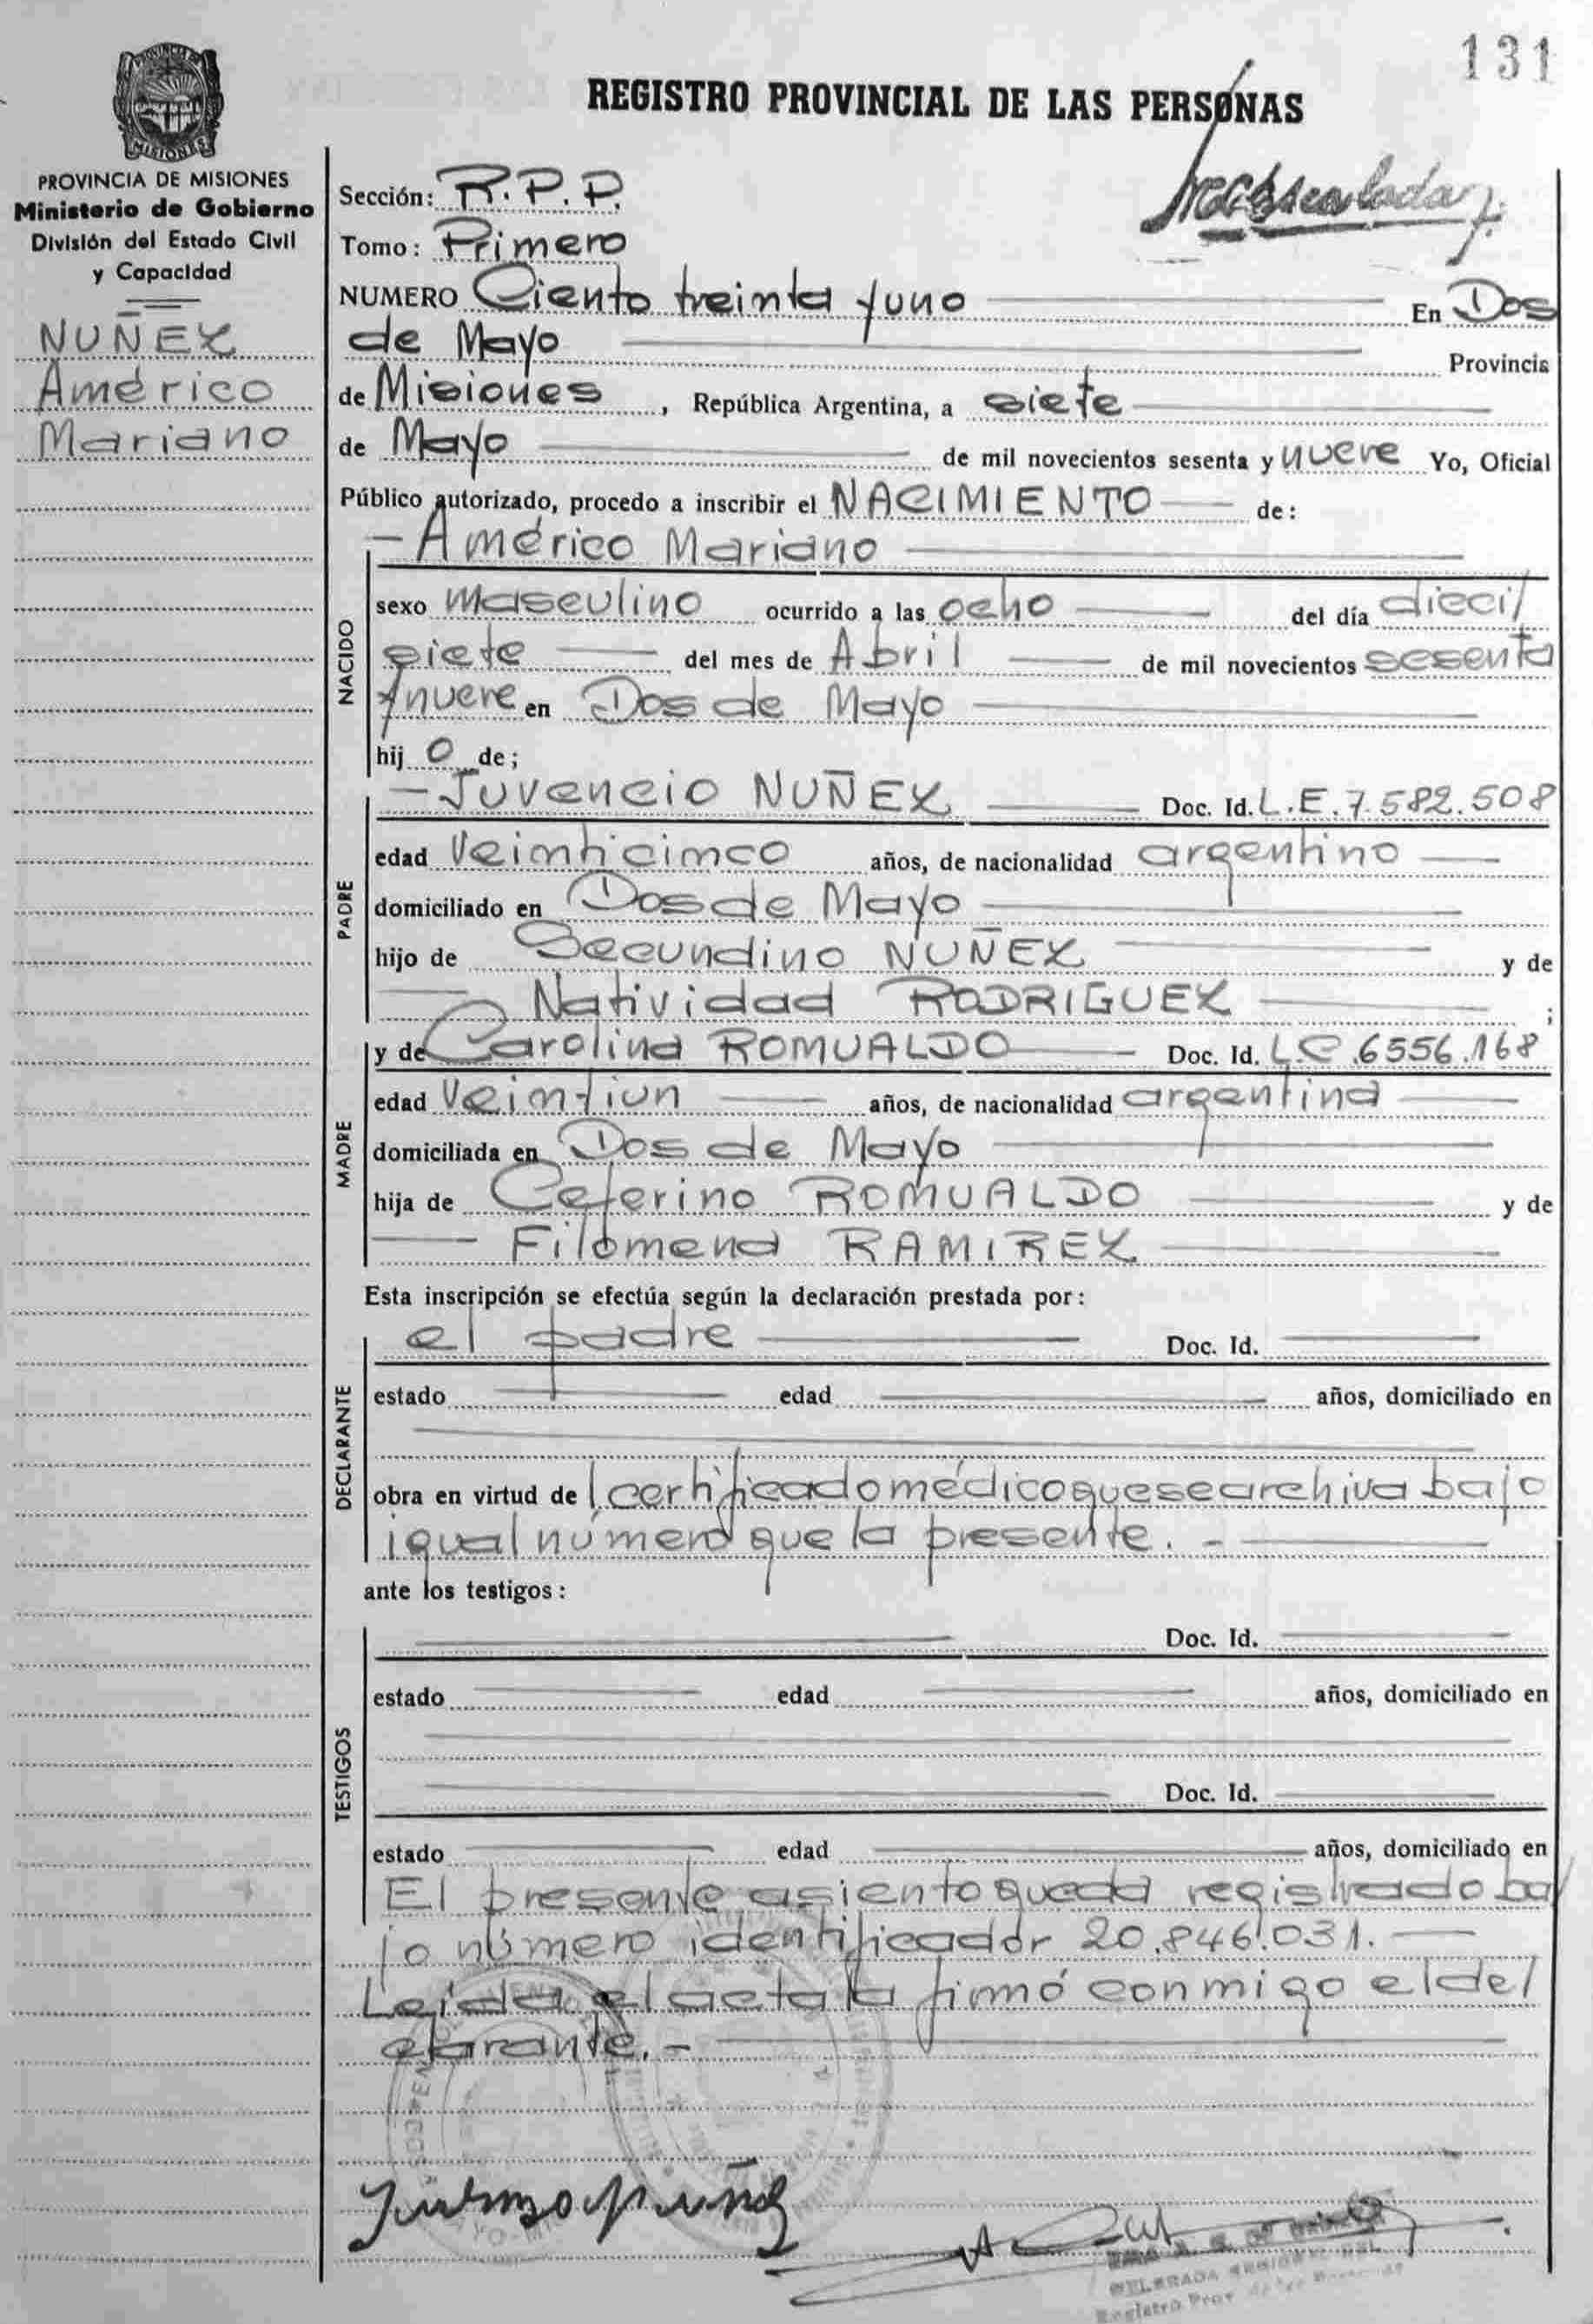 131
REGISTRO PROVINCIAL DE LAS PERSONAS
PROVINCIA DE
MISIONES
PROVINCIA DE MISIONES
Ministerio de Gobierno
División del Estado Civil
y Capacidad
NUÑEZ
Américo
Mariano
Sección: R.P.P.
Tomo: Primero
NUMERO Ciento treinta y uno En Dos
de Mayo Provincia
de Misiones, República Argentina, a siete
de Mayo de mil novecientos sesenta y nueve Yo, Oficial
Público autorizado, procedo a inscribir el NACIMIENTO de:
- Américo Mariano
NACIDO
sexo masculino ocurrido a las ocho del día dieci/
siete del mes de Abril de mil novecientos sesenta
y nueve en Dos de Mayo
hij o de;
PADRE
- Juvencio NUÑEZ Doc. Id. L.E.7.582.508
edad Veinticinco años, de nacionalidad argentino
domiciliado en Dos de Mayo
hijo de Secundino NUÑEZ y de
Natividad RODRIGUEZ ;
MADRE
y de Carolina ROMUALDO Doc. Id. L.C.6556.168
edad Veintiun años, de nacionalidad argentina
domiciliada en Dos de Mayo
hija de Ceferino ROMUALDO y de
Filomena RAMIREZ
Esta inscripción se efectúa según la declaración prestada por:
DECLARANTE
el padre Doc. Id.
estado edad años, domiciliado en
obra en virtud de l certificado médico que se archiva bajo
igual número que la presente. -
ante los testigos:
TESTIGOS
Doc. Id.
estado edad años, domiciliado en
Doc. Id.
estado edad años, domiciliado en
El presente asiento queda registrado ba/
jo número identificador 20.846.031. -
Leída el acta la firmó conmigo el del
clarante. -